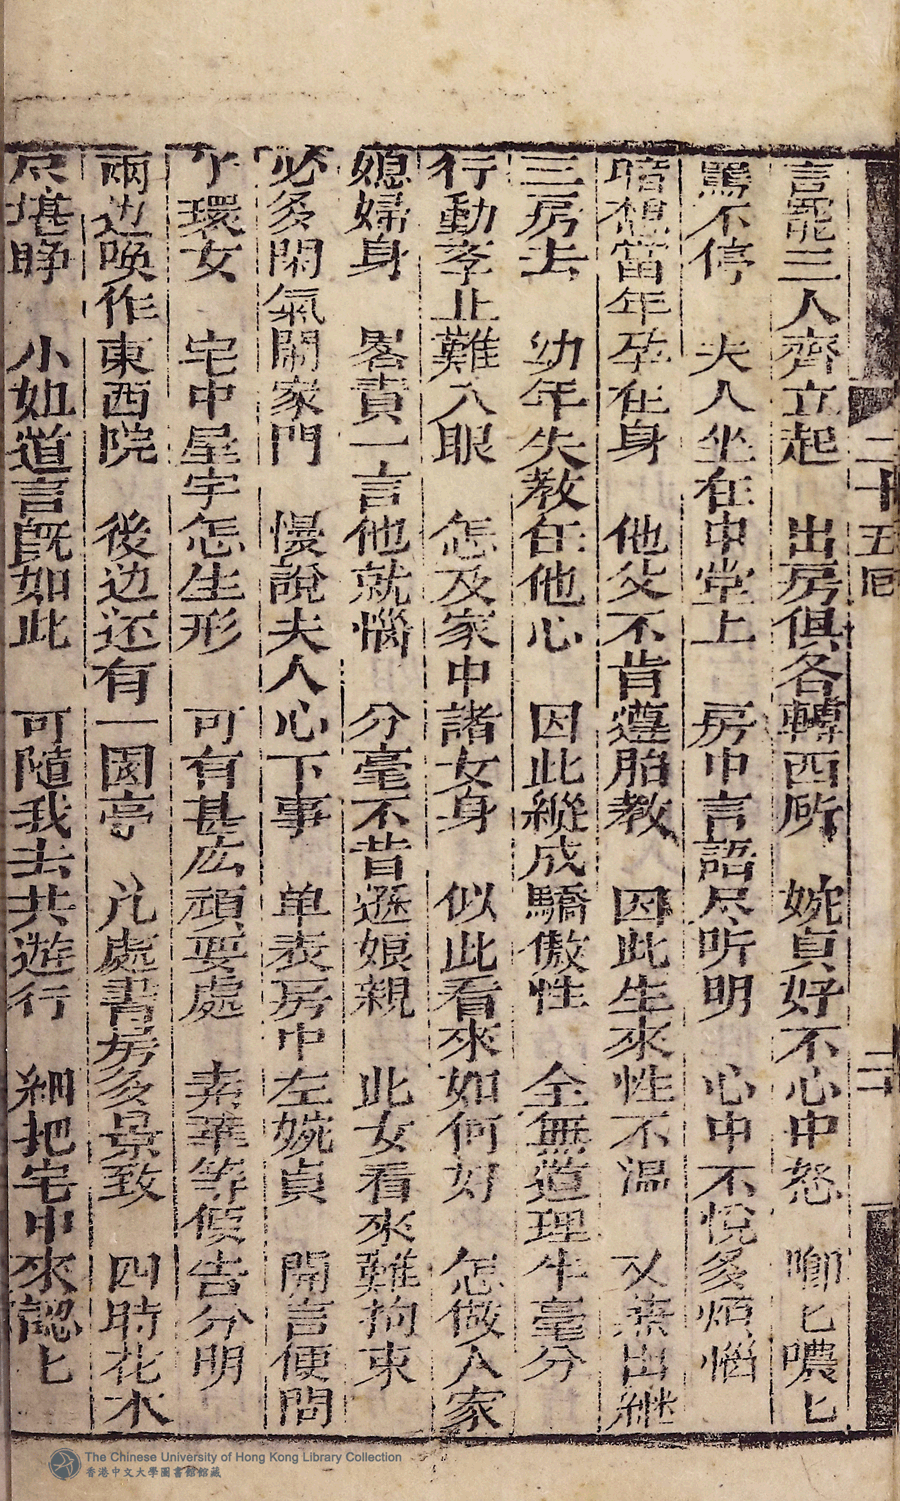 二十五回
二十
言罷三人齊立起　出房俱各轉西所　婉貞好不心中怒　唧匕噥匕
罵不停　夫人坐在中堂上　房中言語尽听明　心中不悅多煩惱
暗想當年孕在身　他父不肯遵胎教　因此生來性不溫　又兼出継
三房去　幼年失教任他心　因此縱成驕傲性　全無道理半毫分
行動孝止難入眼　怎及家中諸女身　似此看來如何好　怎做人家
媳婦身　畧責一言他就惱　分毫不昔遜娘親　此女看來難拘束
必多閑氣鬧家門　慢說夫人心下事　单表房中左婉貞　開言便問
丫環女　宅中屋宇怎生形　可有甚広頑耍處　素華等候告分明
兩边唤作東西院　後边还有一园亭　凢處書房多景致　四時花木
尽堪睁　小姐道言既如此　可隨我去共遊行　細把宅中來認匕
The Chinese University of Hong Kong Library Collection
香港中文大學圖書館館藏